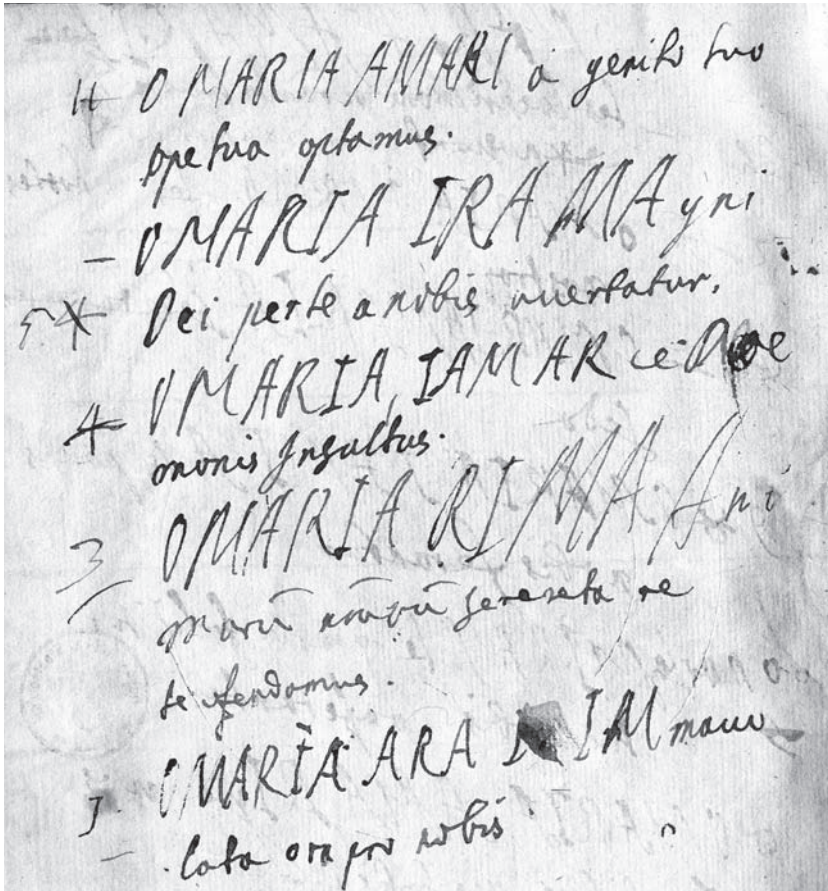 4 O MARIA AMARI a genito tuo
ope tua optamus.
O MARIA IRA MA gni
5 Dei per te a nobis avertatur.
4 O MARIA, IAMAR ce Dae
monis Insultus.
3 O MARIA RIMA Ani
marū nrarū per te
O MARIA ARA IM macu
lata ora pro nobis